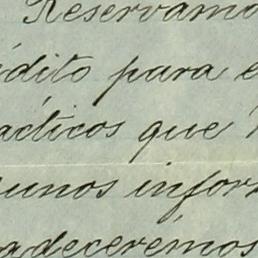 Reservamo
édito para e
ácticos que
unos infor
adeceremos